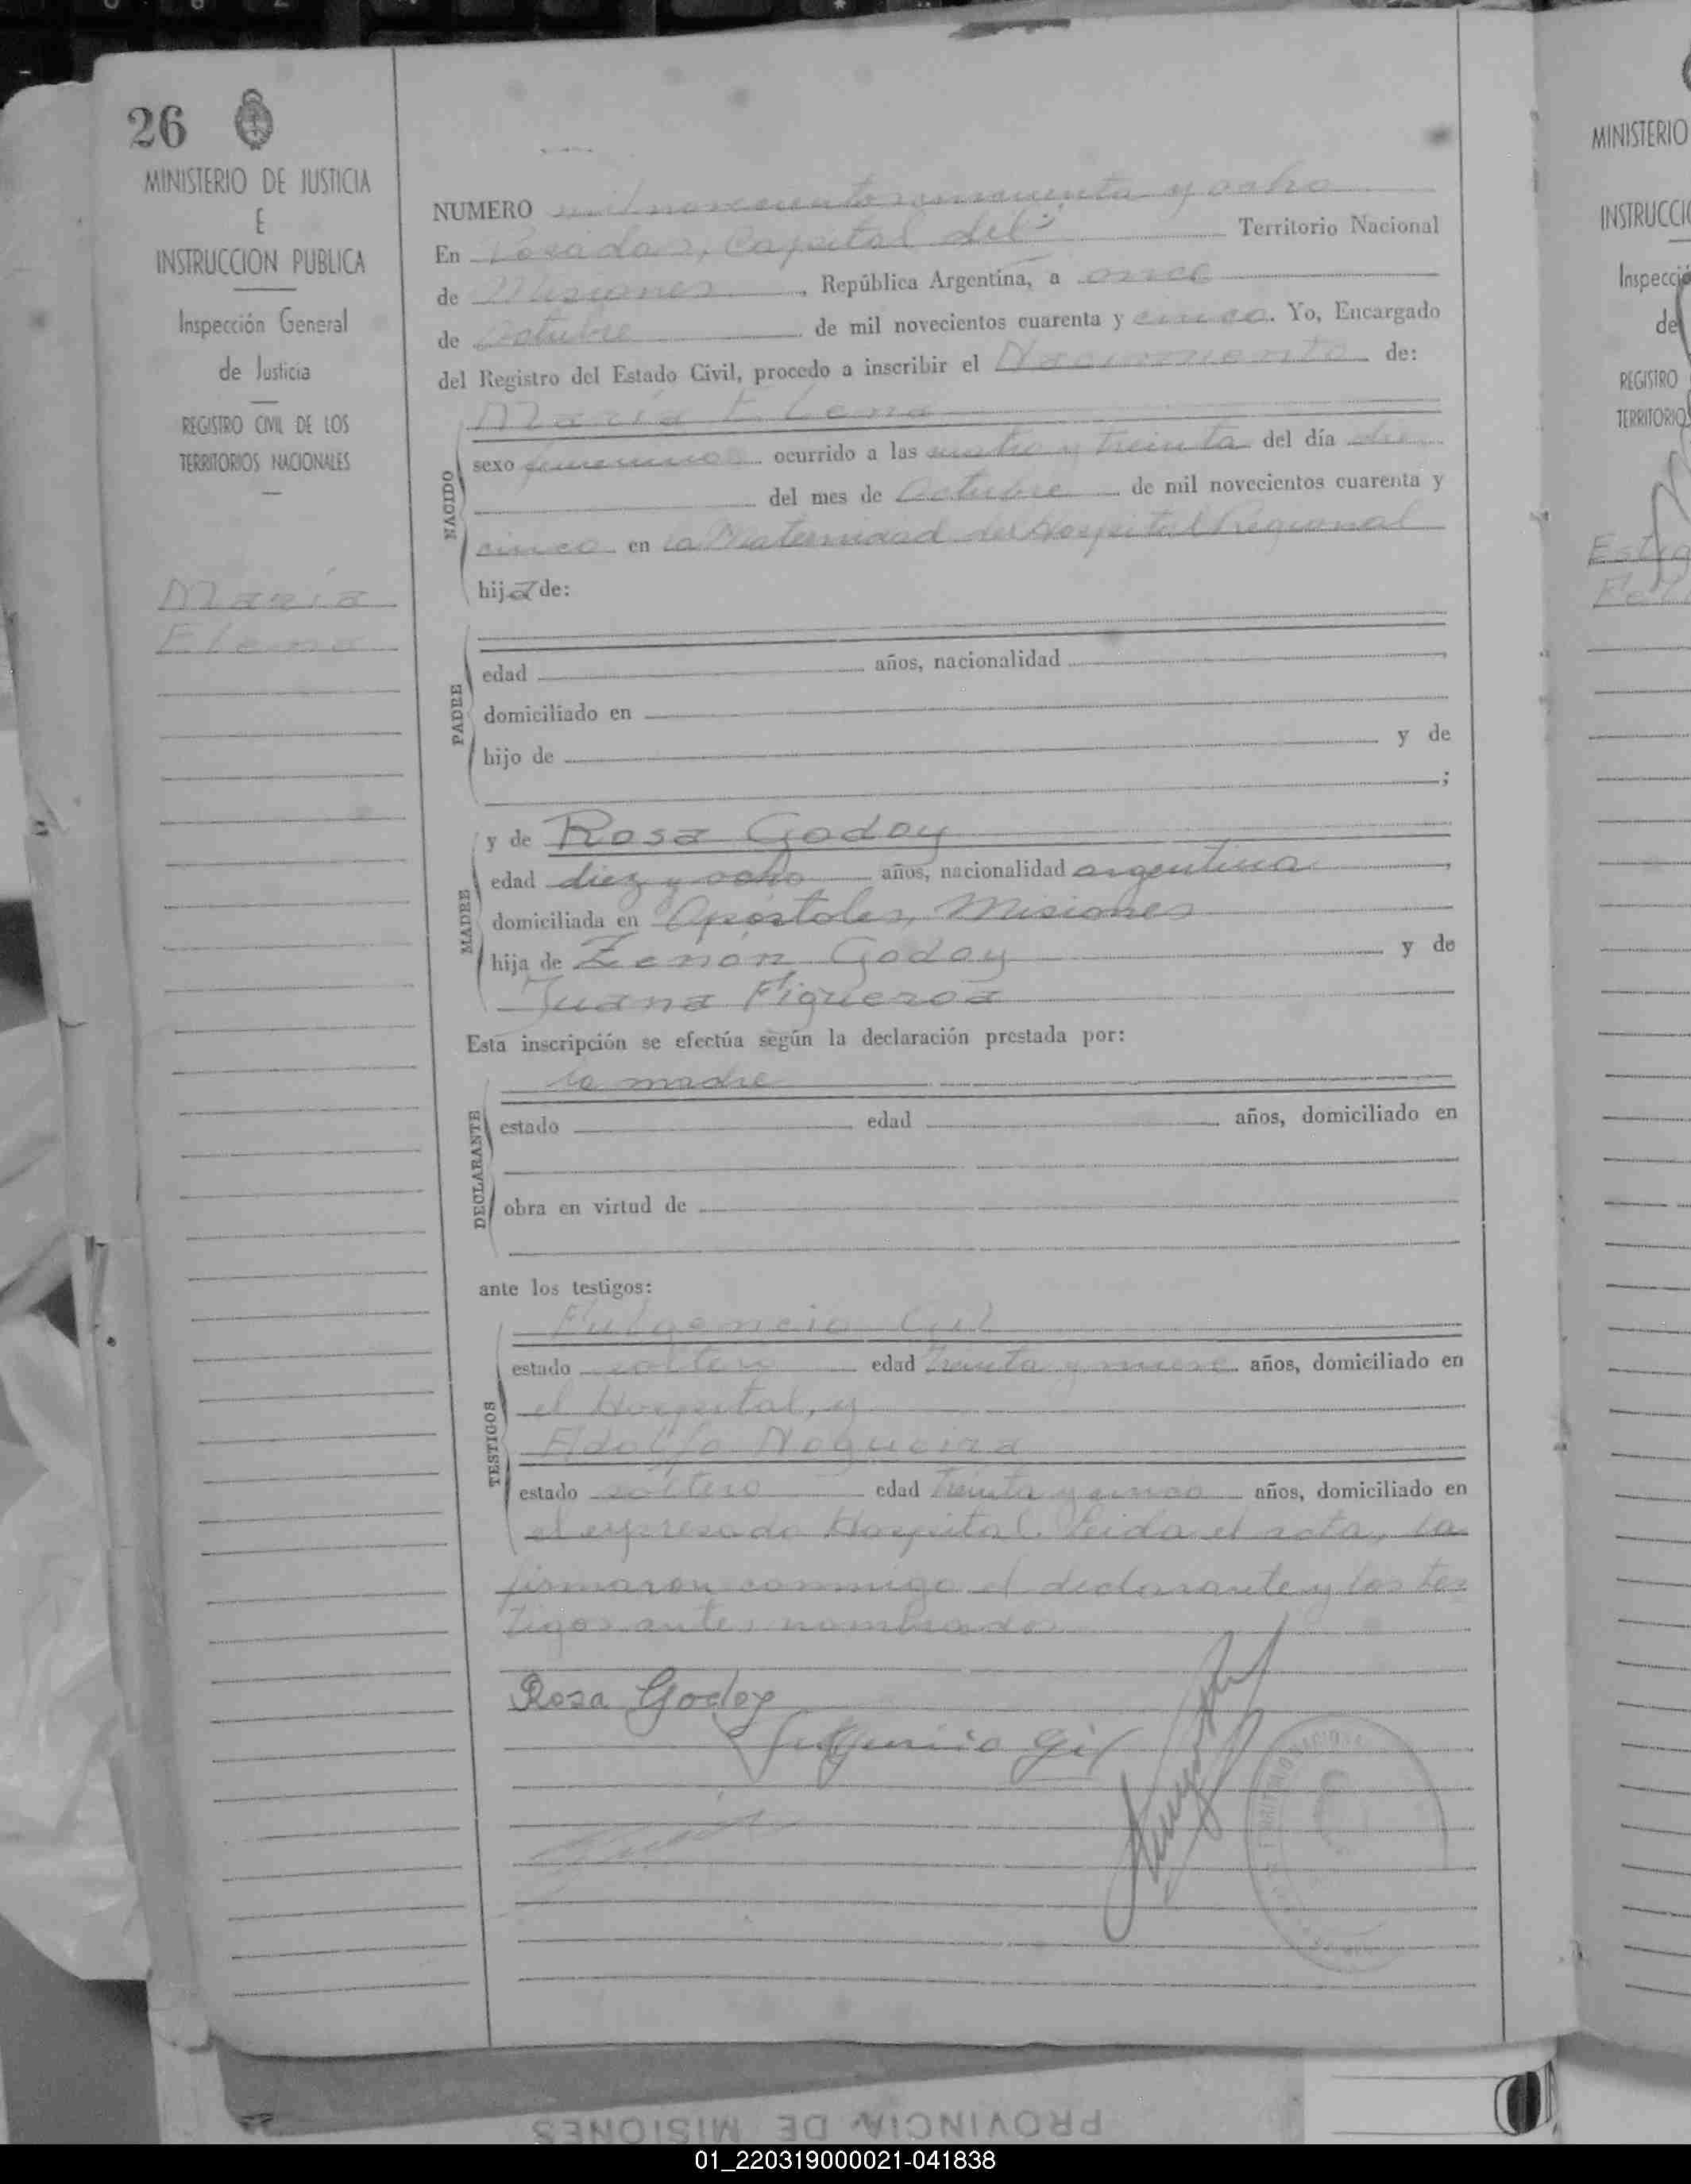 26
MINISTERIO DE JUSTICIA
E
INSTRUCCION PUBLICA
Inspección General
de Justicia
REGISTRO CIVIL DE LOS
TERRITORIOS NACIONALES
María
Elena
NUMERO mil novecientos cincuenta y ocho
En Posadas, Capital del Territorio Nacional
de Misiones, República Argentina, a once
de Octubre de mil novecientos cuarenta y cinco. Yo, Encargado
del Registro del Estado Civil, procedo a inscribir el Nacimiento de:
María Elena
NACIDO
sexo femenino ocurrido a las cuatro y treinta del día
del mes de Octubre de mil novecientos cuarenta y
cinco en la Maternidad del Hospital Regional
hija de:
PADRE
edad años, nacionalidad
domiciliado en
hijo de y de
;
MADRE
y de Rosa Godoy
edad diez y ocho años, nacionalidad argentina,
domiciliada en Apóstoles, Misiones
hija de Zenón Godoy y de
Juana Figueroa
Esta inscripción se efectúa según la declaración prestada por:
DECLARANTE
la madre
estado edad años, domiciliado en
obra en virtud de
ante los testigos:
TESTIGOS
Fulgencio Gil
estado soltero edad treinta y nueve años, domiciliado en
el Hospital, y
Adolfo Nogueira
estado soltero edad treinta y cinco años, domiciliado en
el expresado Hospital. Leida el acta, la
firmaron conmigo el declarante y los tes
tigos antes nombrados
Rosa Godoy
Fulgencio Gil
MINISTERIO
INSTRUCCI
Inspecció
de
REGISTRO
TERRITORIO
PROVINCIA DE MISIONES
01_220319000021-041838